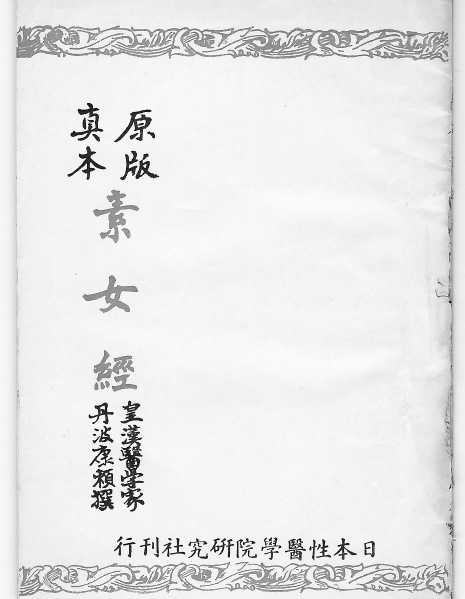 原版
真本
素女經
皇漢醫學家
丹波康頼撰
日本性醫學院研究社刊行